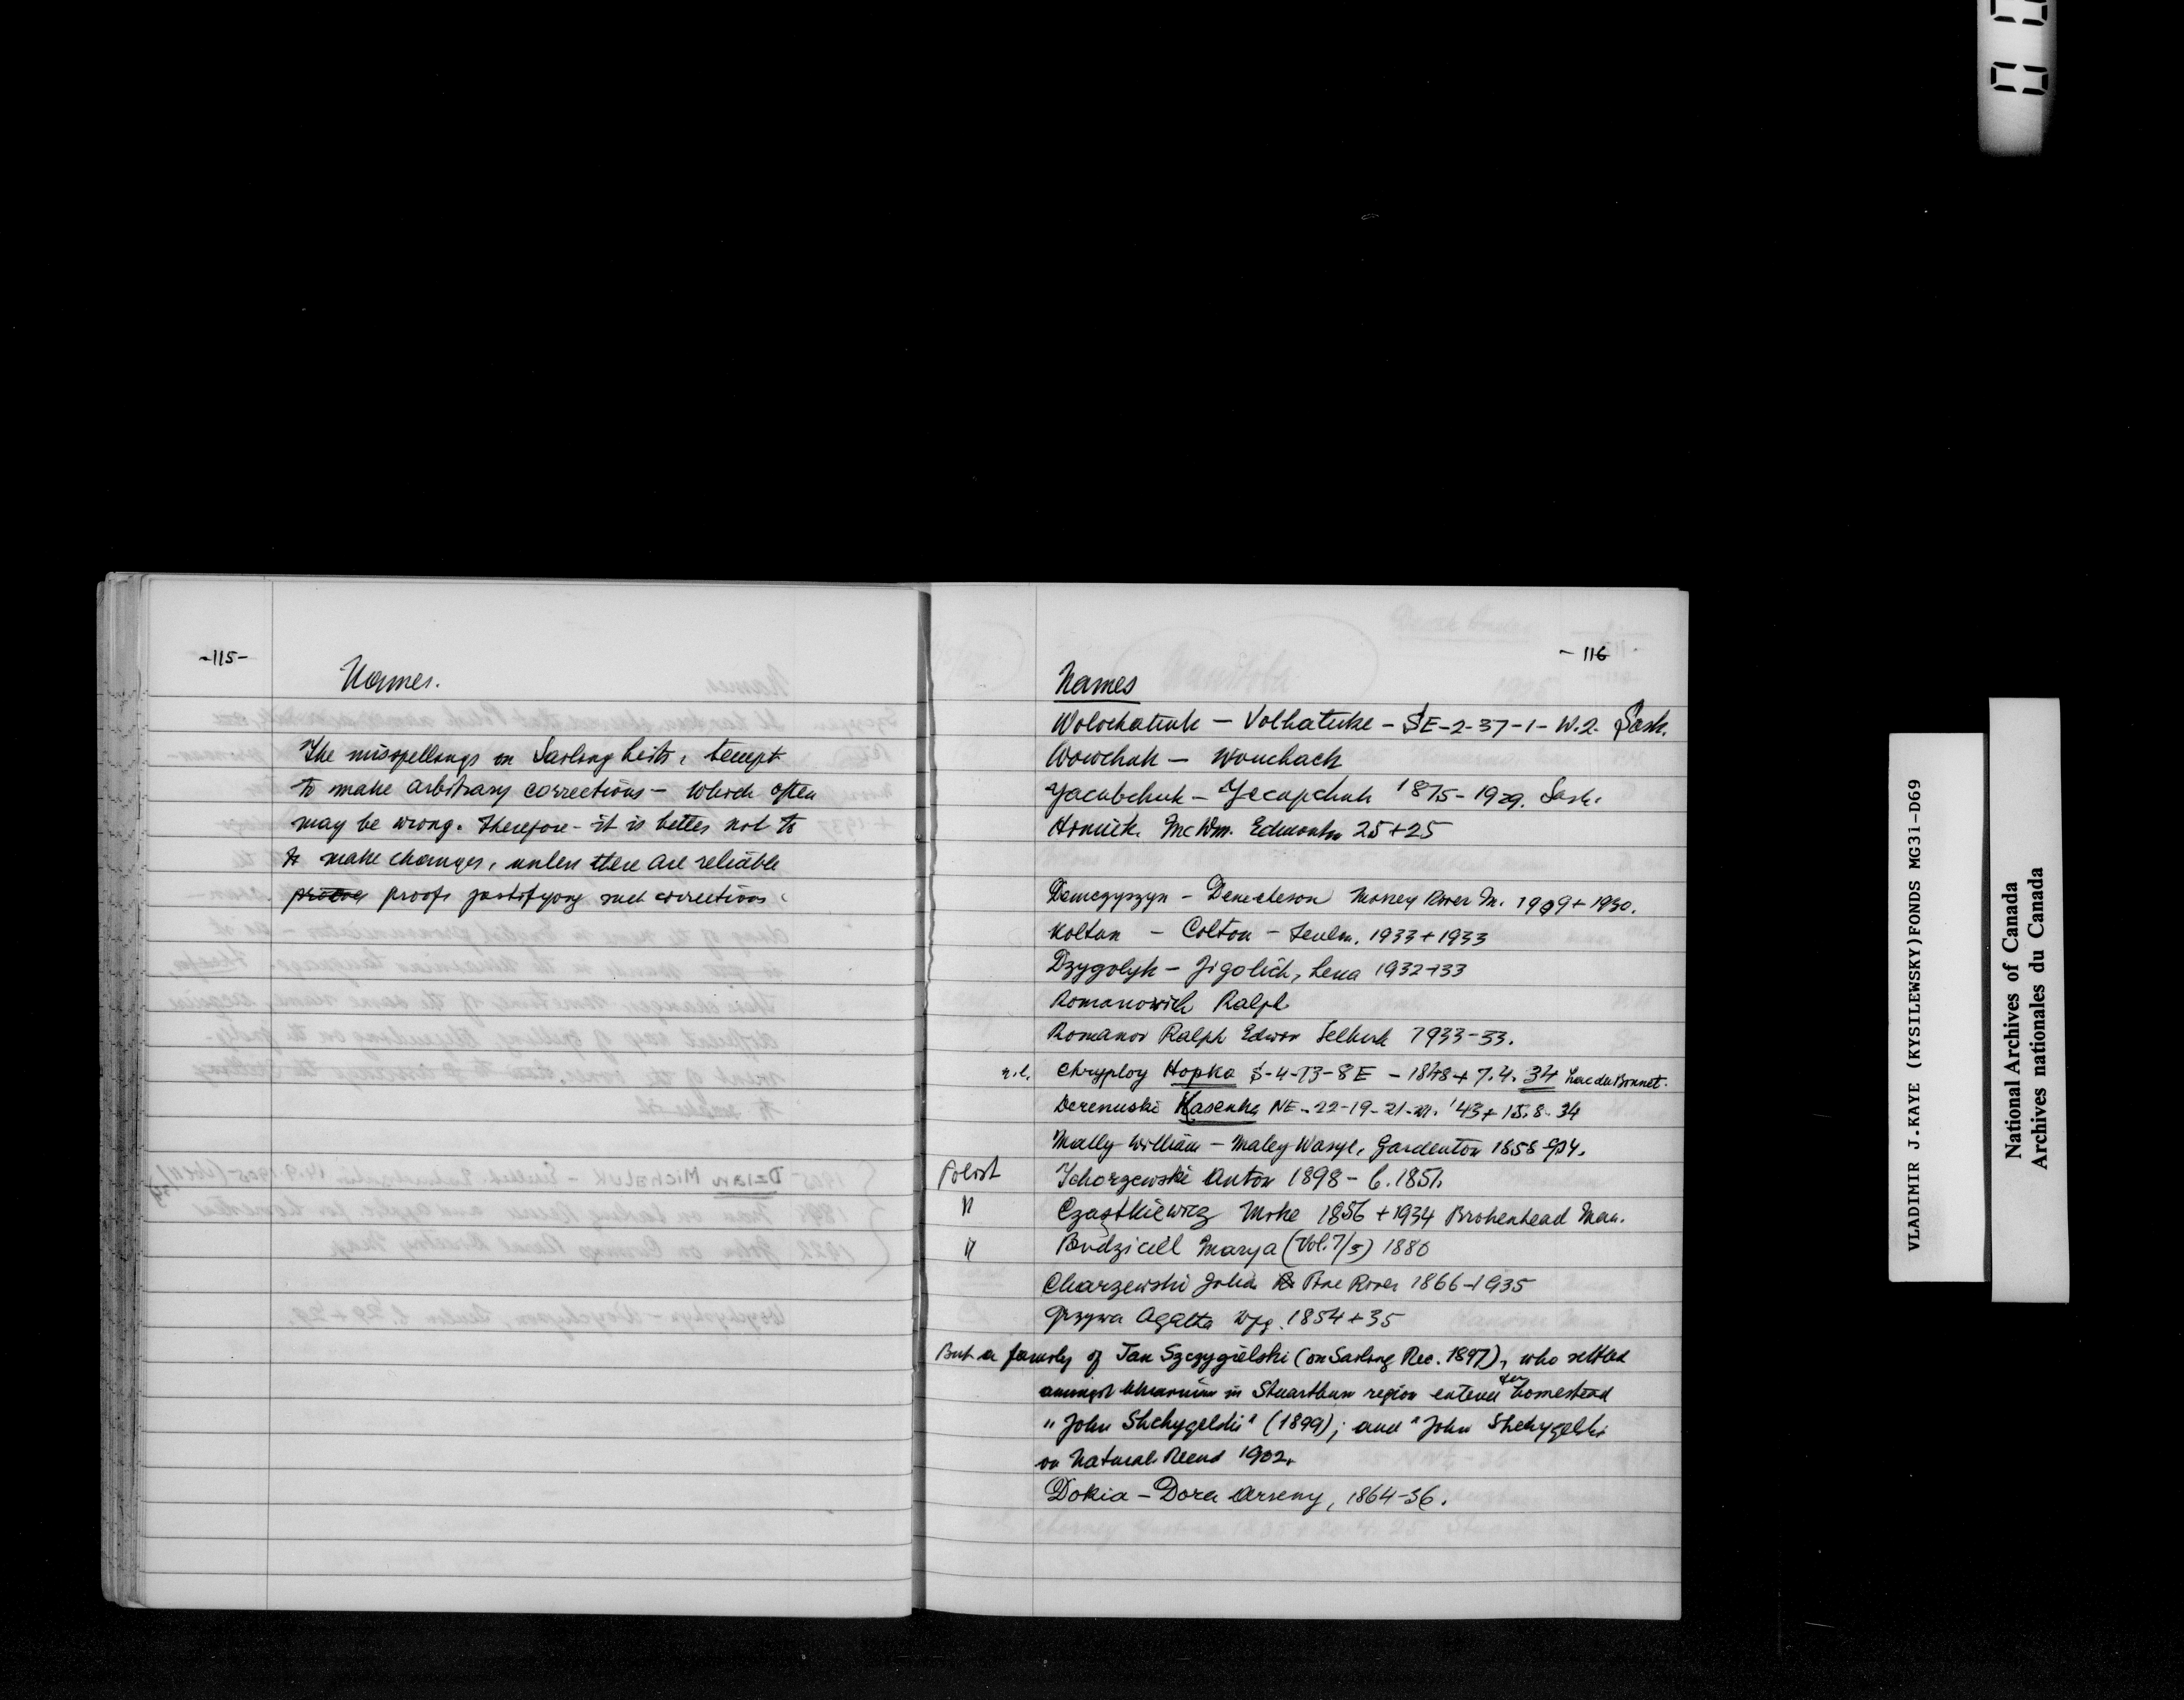 -115-
Names.
The misspellings on Sailing Lists, tempt
to make arbitrary corrections - which often
may be wrong. Therefore - it is better not to
to make changes, unless there are reliable
proofs justifying such corrections.
- 116
Names
Wolochatiuk - Volhatuke - SE-2-37-1-W.2. Sask.
Wowchuk - Wouchack
Yacubchuk - Yecupchuk 1875-1929. Sask.
McWm. Edmonton 25+25
Demczyszyn - Demcheson Mossey River M. 1909+1930.
Koltun - Colton - Teulon. 1933+1933
Dzygolyk - Jigolich, Lena 1932+33
Romanowich Ralph
Romanow Ralph Edwon Selkirk 1933-33.
n.l. Chryploy Hopka S-4-13-8E - 1848+7.4.34 Lac du Bonnet.
Derenuski Kasenka NE-22-19-21-W. '43+15.8.34
Mally William - Maley Wasyl, Gardenton 1858-934.
Polish Tchorzewski Anton 1898 - b. 1851.
" Czastkiewicz Mike 1856+1934 Brokenhead Man.
" Budzicill Marya (Vol.7/5) 1886
Charzewski John Pine River 1866-1935
Grzywa Agatta Wpg. 1854+35
But a family of Jan Szczygielski (on Sailing Rec. 1897), who settled
amongst Ukrainian in Stuartburn region entered for homestead
"John Shchygelski" (1899); and "John Shchygelski
on Natural. Record 1902.
Dokia - Dora Arseny, 1864-36.
VLADIMIR J.KAYE (KYSILEWSKY)FONDS MG31-D69
National Archives of Canada
Archives nationales du Canada